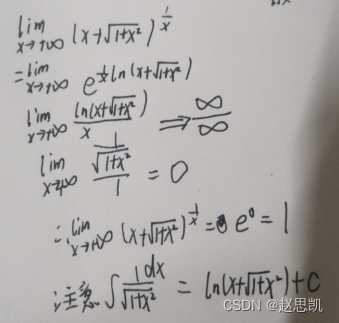 lim x→+∞ (x+√1+x²)^(1/x)
= lim x→+∞ e^(1/x ln(x+√1+x²))
lim x→+∞ ln(x+√1+x²)/x ⇒ ∞/∞
lim x→+∞ (1/√1+x²)/1 = 0
∴ lim x→+∞ (x+√1+x²)^(1/x) = e⁰ = 1
注意 ∫ 1dx/√1+x² = ln(x+√1+x²)+C
CSDN @赵思凯